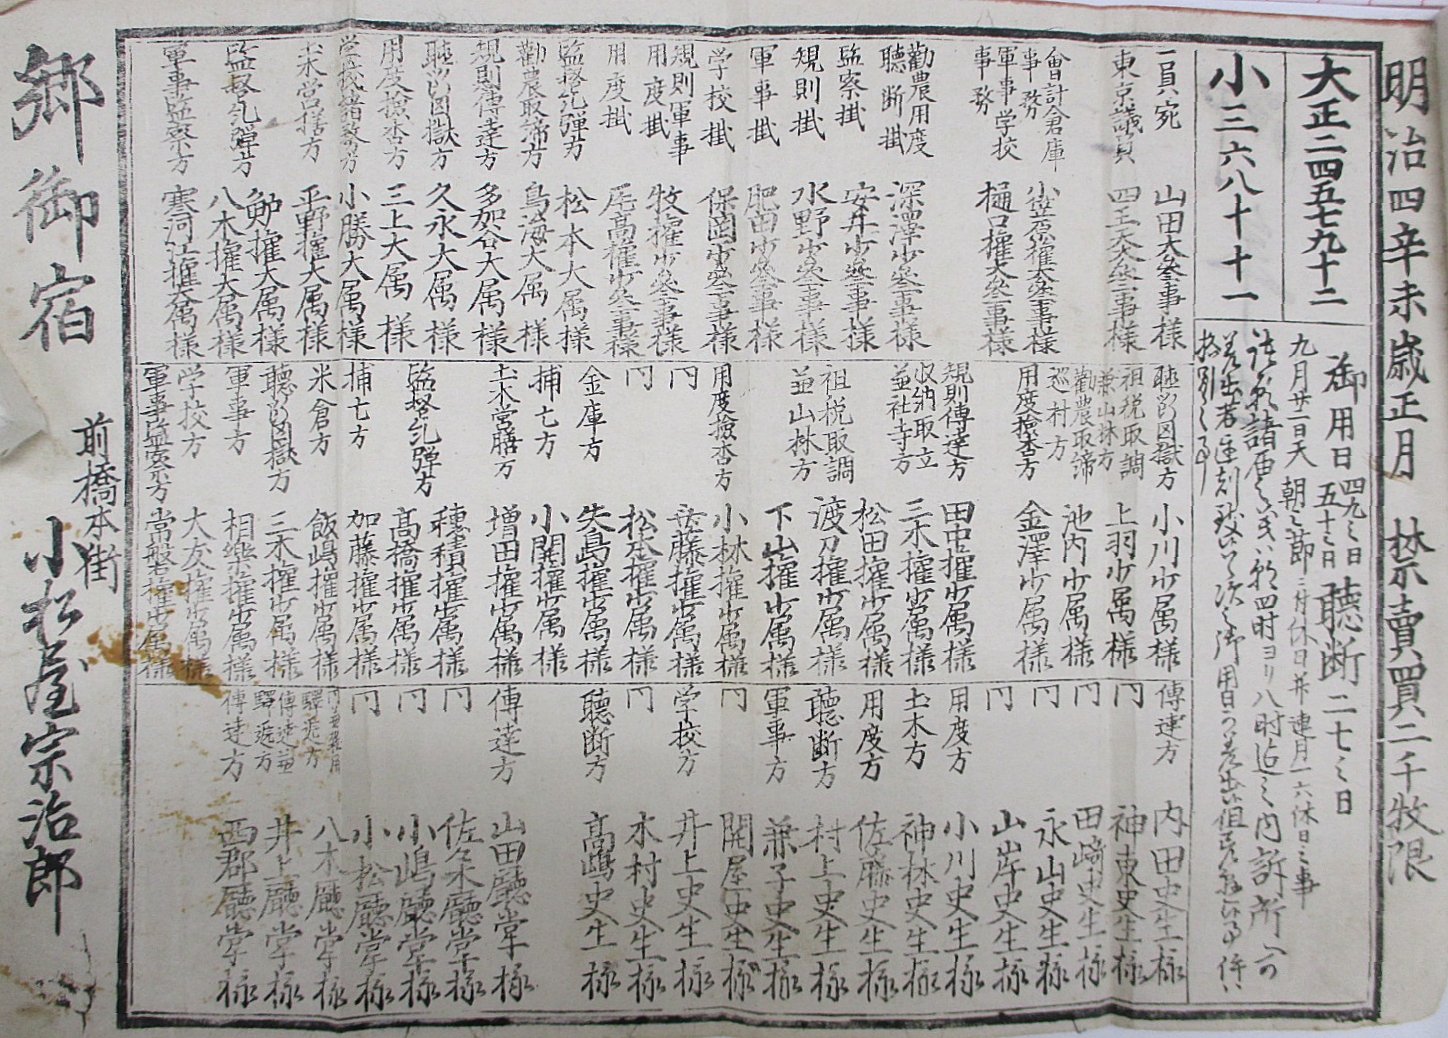 明治四辛未歳正月 禁賣買二千牧限
大正二四五七九十二
小三六八十十一
御用日四九之日五十之日 聴断二七之日
九月廿二日天朝之節 三月休日并連月一六休日之事
一員宛 山田大参事様
東京議員 四王天大参事様
會計倉庫事務 小笠原権大参事様
軍事学校事務 樋口権大参事様
勸農用度聴断掛 深澤少参事様
監察掛 安井少参事様
規則掛 水野少参事様
軍事掛 肥田少参事様
学校掛 保岡少参事様
規則軍事用度掛 牧権少参事様
用度掛 尾高権少参事様
監督糺弾方 松本大属様
勸農取締方 鳥海大属様
規則傳達方 多加谷大属様
聴訟囚獄方 久永大属様
用度撿査方 三上大属様
小勝大属様
土木営繕方 平野権大属様
監督糺弾方 八木権大属様
軍事監察方 寒河江権大属様
聴訟囚獄方 小川少属様
祖税取調兼山林方 上羽少属様
勸農取締巡村方 池内少属様
用度撿査方 金澤少属様
規則傳達方 田中権少属様
収納取立並社寺方 三木権少属様
松田権少属様
祖税取調並山林方 渡刀権少属様
下山権少属様
用度撿査方 小林権少属様
〃 安藤権少属様
〃 松本権少属様
金庫方 矢島権少属様
捕亡方 小開権少属様
土木営膳方 増田権少属様
穂積権少属様
監督糺弾方 高橋権少属様
捕亡方 加藤権少属様
米倉方 飯嶋権少属様
聴訟囚獄方 三木権少属様
軍事方 相樂権少属様
学校方 大友権少属様
軍事監察方 常盤権少属様
傳達方 内田史生様
〃 神東史生様
〃 田﨑史生様
〃 永山史生様
〃 山岸史生様
用度方 小川史生様
土木方 神林史生様
用度方 佐藤史生様
聴断方 村上史生様
軍事方 兼子史生様
〃 関屋史生様
学校方 井上史生様
〃 木村史生様
聴断方 高嶋史生様
傳達方 山田廳掌様
〃 佐久木廳掌様
〃 小嶋廳掌様
〃 小松廳掌様
驛逓方 八木廳掌様
傳達並驛逓方 井上廳掌様
傳達方 西郡廳掌様
郷御宿 前橋本街 小松屋宗治郎